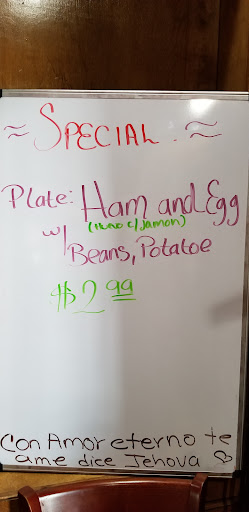 ≈ SPECIAL. ≈
Plate: Ham and Egg
(Huevo c/Jamon)
w/ Beans, Potatoe
$2.99
Con Amor eterno te
ame dice Jehova